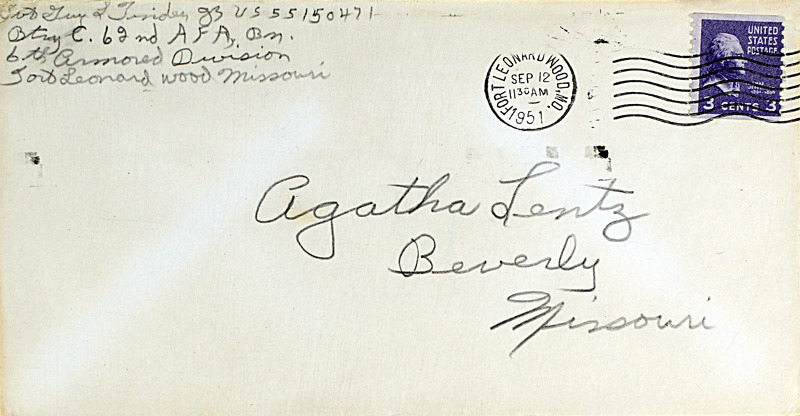 Pvt Guy L US 55150471
Btry C. 62nd AFA, Bn.
6th Armored Division
Fort Leonard wood Missouri
FORT LEONARD WOOD, MO.
SEP 12
1130 AM
1951
UNITED
STATES
POSTAGE
3 CENTS 3
Agatha Lentz
Beverly
Missouri